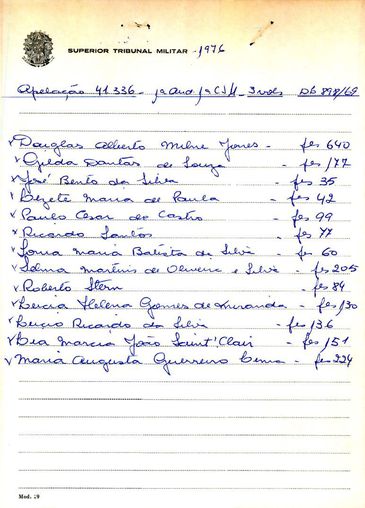 SUPERIOR TRIBUNAL MILITAR - 1976
Apelação 41.336 - 1ª Aud 1ª CJM - 3 vols
Douglas Alberto Milne Jones - fls 640
Gilda Dantas de Souza - fls 177
José Bento da Silva - fls 35
Elizete Maria de Paula - fls 42
Paulo Cesar de Castro - fls 99
Ricardo Santos - fls 77
Sonia Maria Batista da Silva - fls 60
Selma Martins de Oliveira e Silva - fls 205
Roberto Stern - fls 84
Helena Gomes de Miranda - fls 130
Ricardo da Silva - fls 136
Marcia João Saint'Clair - fls 151
Maria Augusta Guerreiro - fls 224
Mod. 19